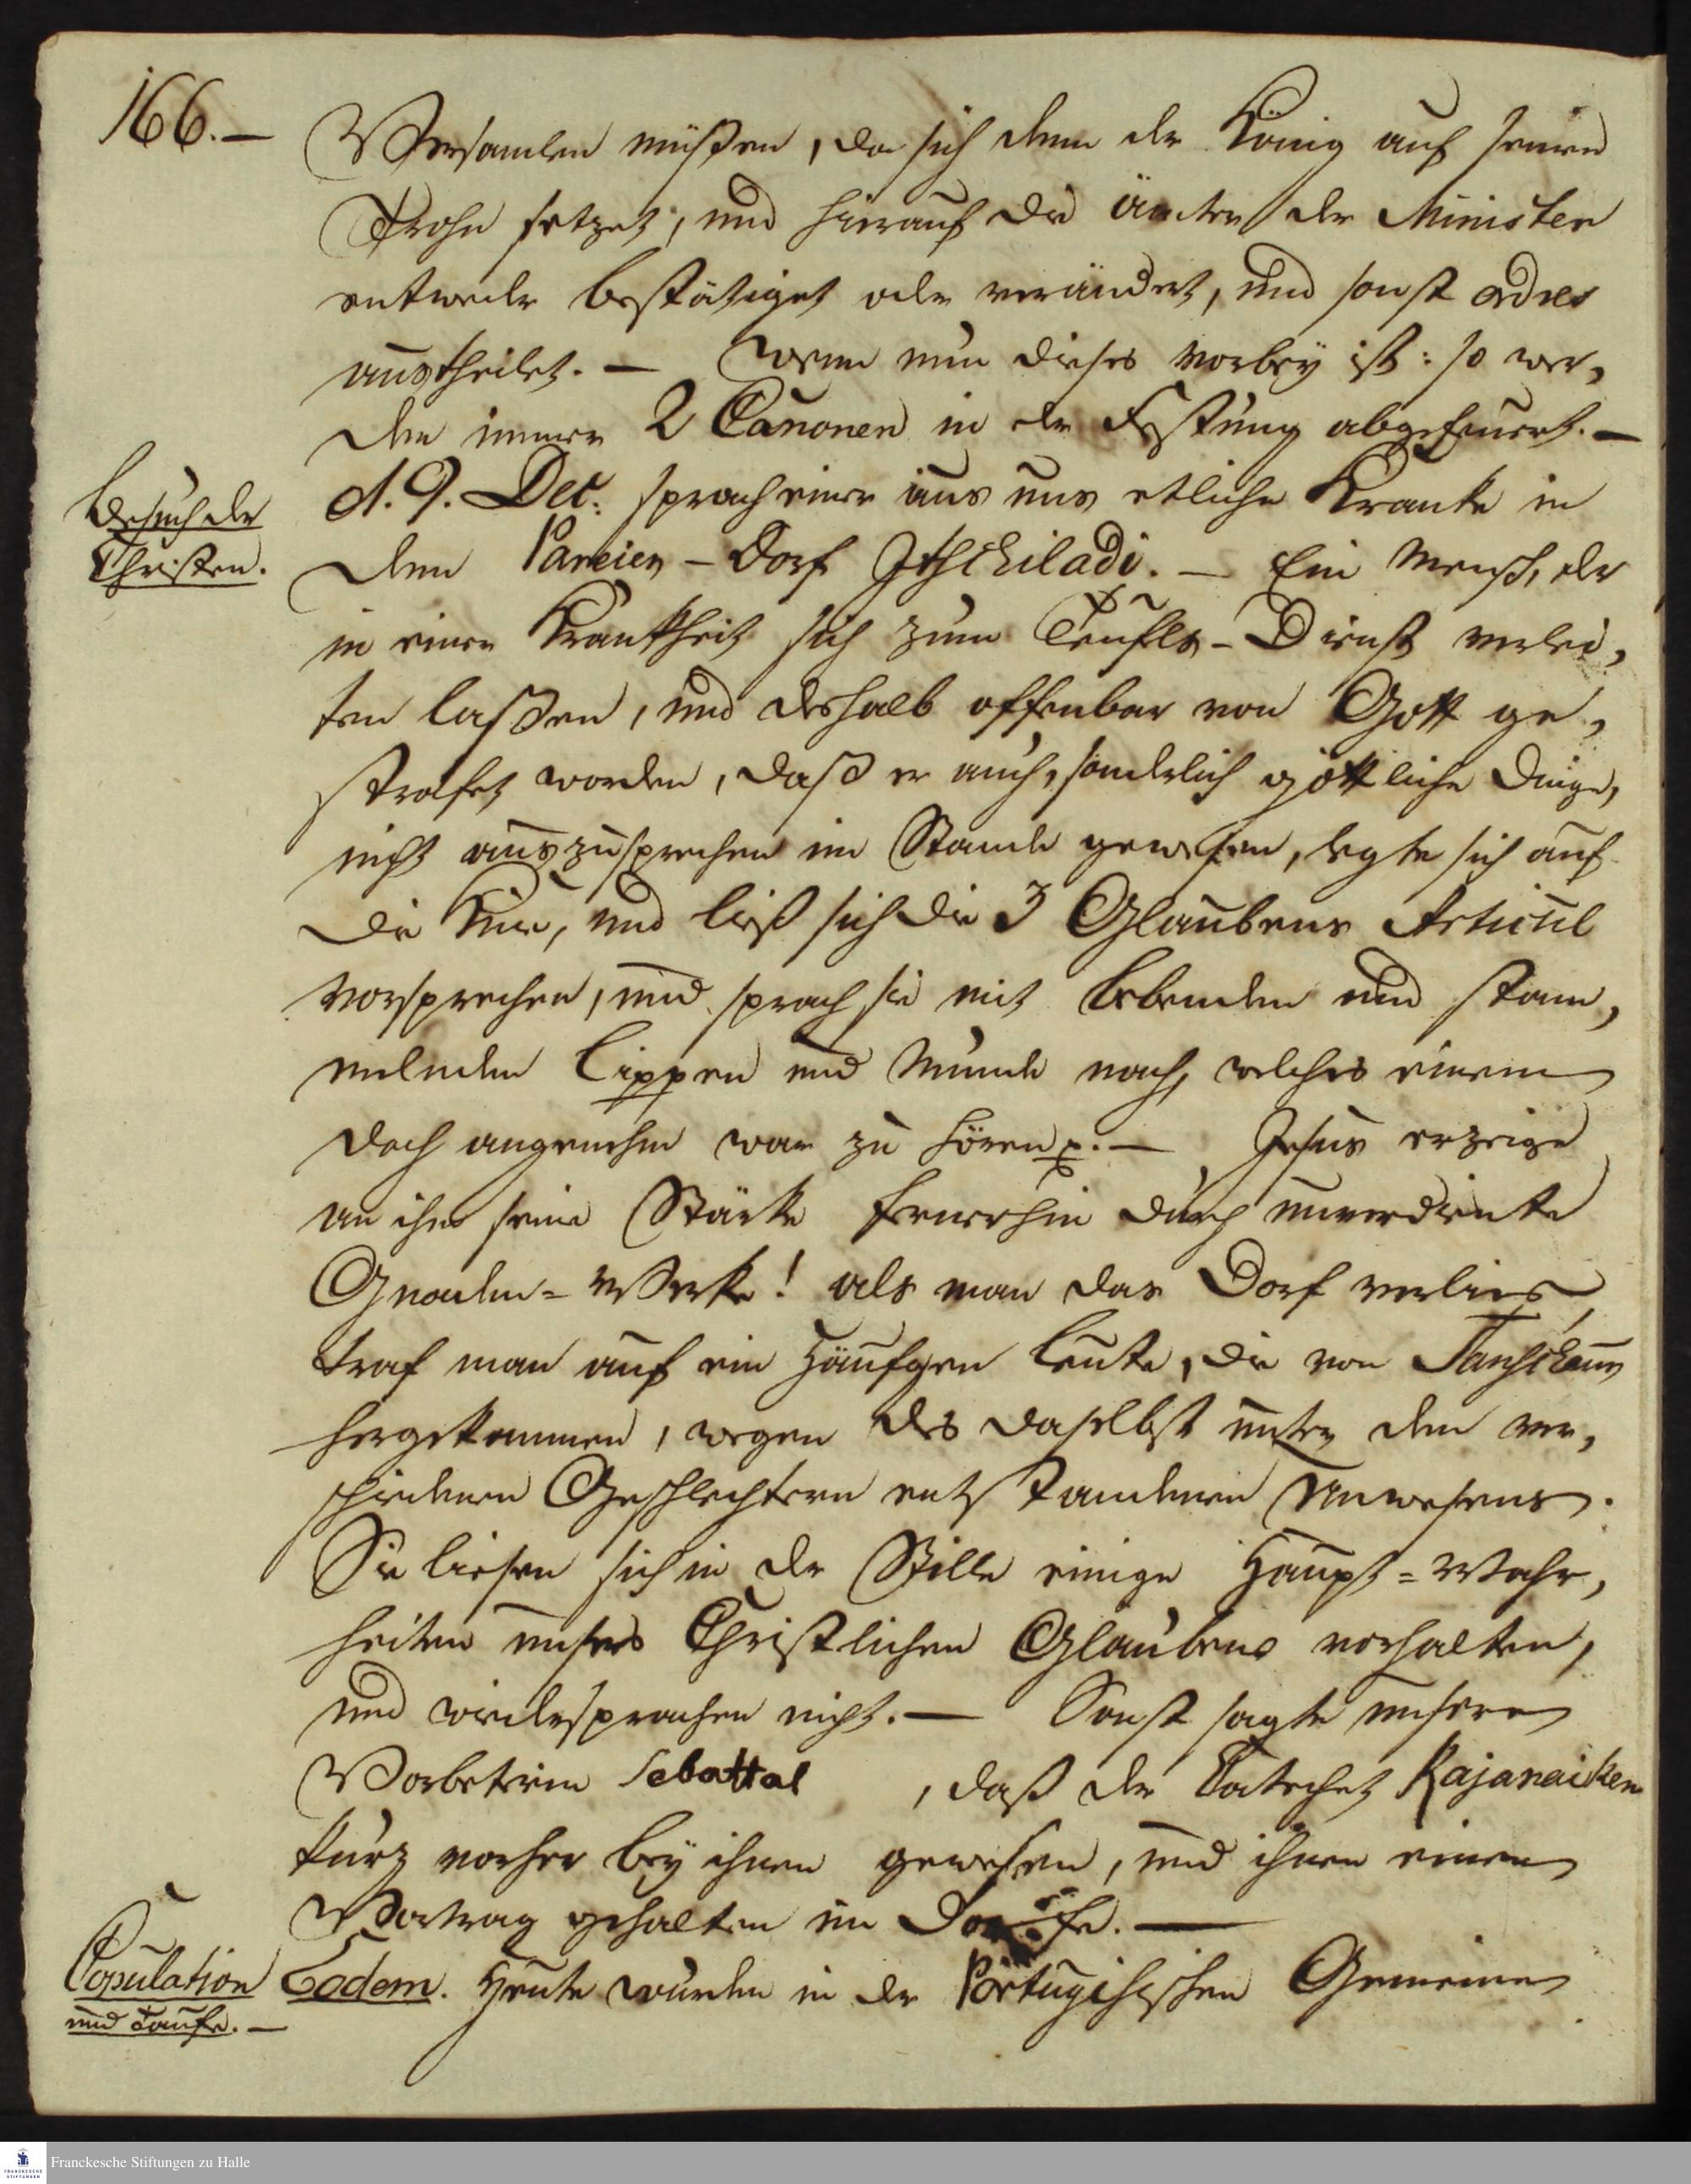 166.—
Versamlen müßen, da sich denn der König auf seinen
Trohn setzet, und hierauf die ämter der Minister
entweder bestätiget oder verändert, und sonst ordres
austheilet. — Wenn nun dieses vorbey ist: so wer,
den immer 2 Canonen in der Festung abgefeuert. —
Besuch der
Christen.
d. 9. Dec: sprach einer aus uns etliche Kranke in
dem Pareier-Dorf Itschiladi. — Ein Mensch, der
in einer Krankheit sich zum Teufels-Dienst verlei,
ten laßen, und deshalb offenbar von Gott ge,
strafet worden, daß er auch, sonderlich göttliche Dinge,
nicht auszusprechen im Stande gewesen, legte sich auf
die Knie, und ließ sich die 3 Glaubens Articul
vorsprechen, und sprach sie mit bebenden und stam,
melnden Lippen und Munde nach, welches einem
doch angenehm war zu hören p. — Jesus erzeige
an ihm seine Stärke fernerhin durch unverdiente
Gnaden-Werke! als man das Dorf verlies
traf man auf ein Häufgen Leute, die von Tanschaur
hergekommen, wegen des daselbst unter den ver,
schiedenen Geschlechtern entstandenen Unwesens.
Sie liesen sich in der Stille einige Haupt-Wahr,
heiten unsers Christlichen Glaubens vorhalten,
und widersprachen nicht. — Sonst sagte unsere
Vorbeterin Sebattal , daß der Catechet Rajanaiken
kurz vorher bey ihnen gewesen, und ihnen einen
Vortrag gehalten im Dorfe. —
Copulation
und Taufe. —
Eodem. Heute wurden in der Portugisischen Gemeine
Franckesche Stiftungen zu Halle